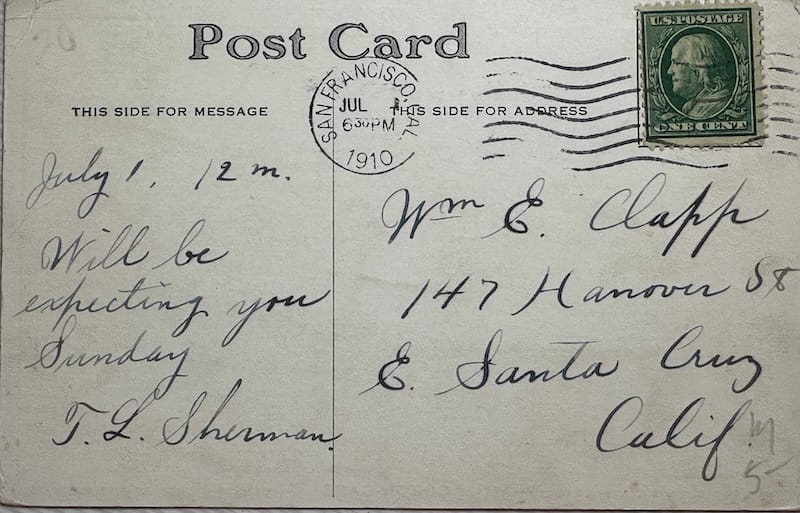 Post Card
U.S. POSTAGE
ONE CENT
SAN FRANCISCO, CAL
JUL 1
6 30 PM
1910
THIS SIDE FOR MESSAGE
THIS SIDE FOR ADDRESS
July 1, 12 m.
Will be
expecting you
Sunday
T. L. Sherman.
Wm E. Clapp
147 Hanover St
E. Santa Cruz
Calif.